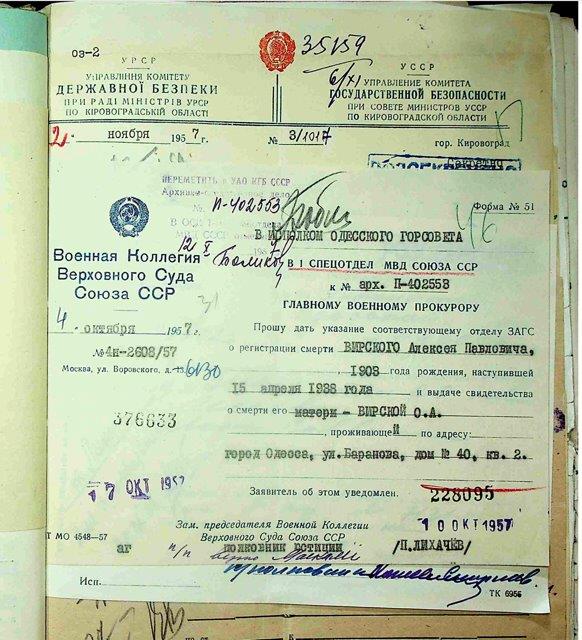 ОЗ-2
35159
6/XI
УРСР
УПРАВЛІННЯ КОМІТЕТУ
ДЕРЖАВНОЇ БЕЗПЕКИ
ПРИ РАДІ МІНІСТРІВ УРСР
ПО КІРОВОГРАДСЬКІЙ ОБЛАСТІ
УССР
УПРАВЛЕНИЕ КОМИТЕТА
ГОСУДАРСТВЕННОЙ БЕЗОПАСНОСТИ
ПРИ СОВЕТЕ МИНИСТРОВ УССР
ПО КИРОВОГРАДСКОЙ ОБЛАСТИ
2 ноября 1957г.
№ 3/1017
гор. Кировоград
Секретно
ПЕРЕМЕТИТЬ в УАО КГБ СССР
Архивно-
№ П-402553
Форма № 51
В ИСПОЛКОМ ОДЕССКОГО ГОРСОВЕТА
В I СПЕЦОТДЕЛ МВД СОЮЗА ССР
к № арх. П-402553
ГЛАВНОМУ ВОЕННОМУ ПРОКУРОРУ
Военная Коллегия
Верховного Суда
Союза ССР
4 октября 1957г.
№4н-2608/57
Москва, ул. Воровского, д. 13
6130
376633
17 ОКТ 1957
Прошу дать указание соответствующему отделу ЗАГС
о регистрации смерти ВИРСКОГО Алексея Павловича,
1903 года рождения, наступившей
15 апреля 1938 года и выдаче свидетельства
о смерти его матери - ВИРСКОЙ О.А.
, проживающей по адресу:
город Одесса, ул.Баранова, дом № 40, кв. 2.
Заявитель об этом уведомлен.
228095
10 ОКТ 1957
Зам. председателя Военной Коллегии
Верховного Суда Союза ССР
ПОЛКОВНИК ЮСТИЦИИ /П.ЛИХАЧЁВ/
Т МО 4548—57
аг
п/п
Исп.
ТК 6956